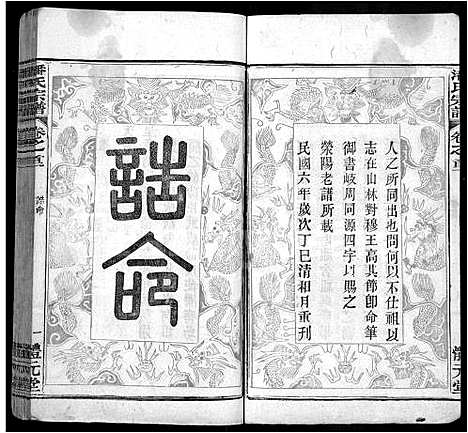 潘氏宗譜
卷之首
人之所同出也問何以不仕祖以
志在山林對穆王高其節卽命筆
御書岐周同源四字以賜之
滎陽老譜所載
民國六年歲次丁巳清和月重刊
體元堂
誥命
潘氏宗譜
卷之首
誥命
一
體元堂